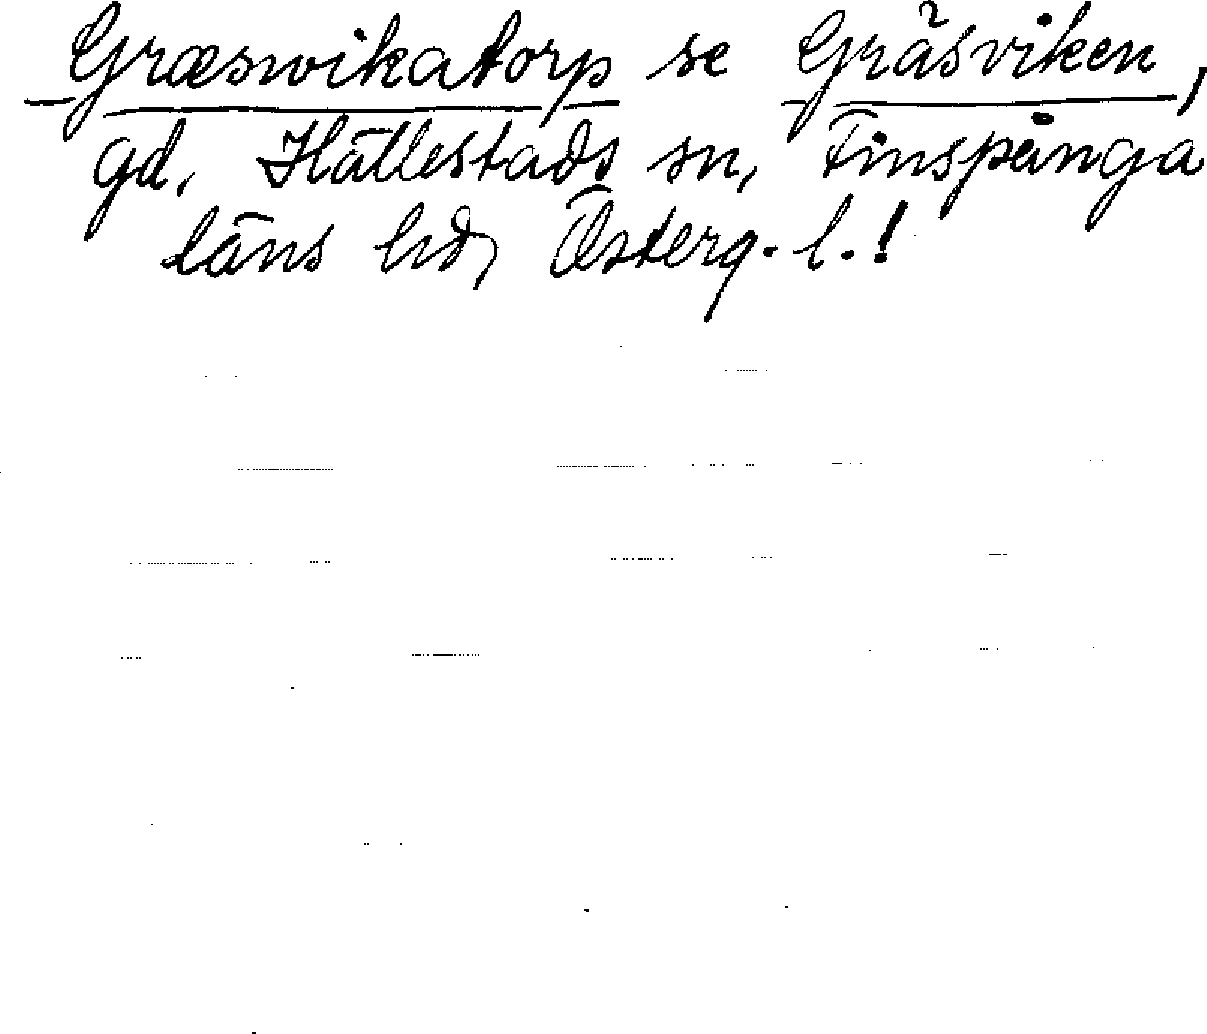 Græswikatorp se Gräsviken,
gd, Hällestads sn, Finspånga
läns hd, Österg. l.!